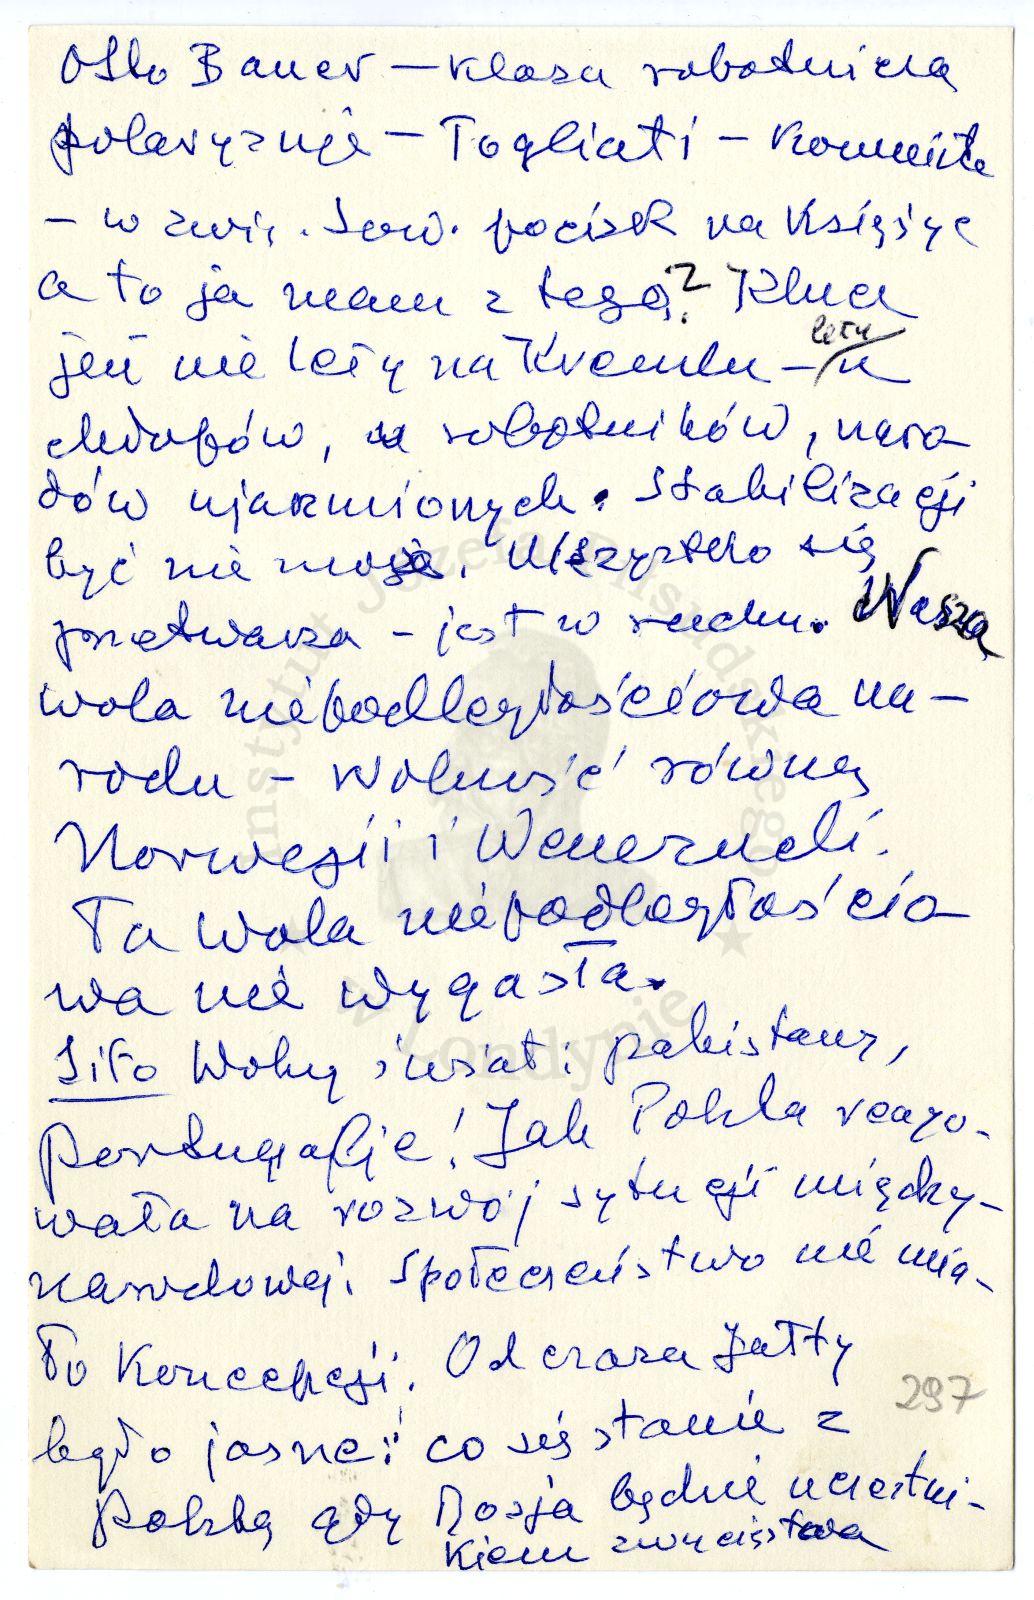 Otto Bauer – klasa robotnicza
polaryzuje – Togliati – Komunista
– w zwią. Sow. pocisk na Księżyc
a to ja mam z tego? Klucz
jest nie leży na Kremlu – leży u
chłopów, u robotników, naro-
dów ujarzmionych. Stabilizacji
być nie może. Wszystko się
przetwarza – jest w ruchu. Wasza
wola niepodległościowa na-
rodu – Wolność równą
Norwegii i Wenezueli.
Ta Wola niepodległościo-
wa nie wygasła.
Siłą Wolny świat: pakistany,
portugalie! Jak Polska reago-
wała na rozwój sytuacji między-
narodowej: społeczeństwo nie mia-
ło koncepcji. Od czasu Jałty
było jasne: co się stanie z
Polską gdy Rosja będzie uczestni-
kiem zwycięstwa
297
Instytut Józefa Piłsudskiego
w Londynie